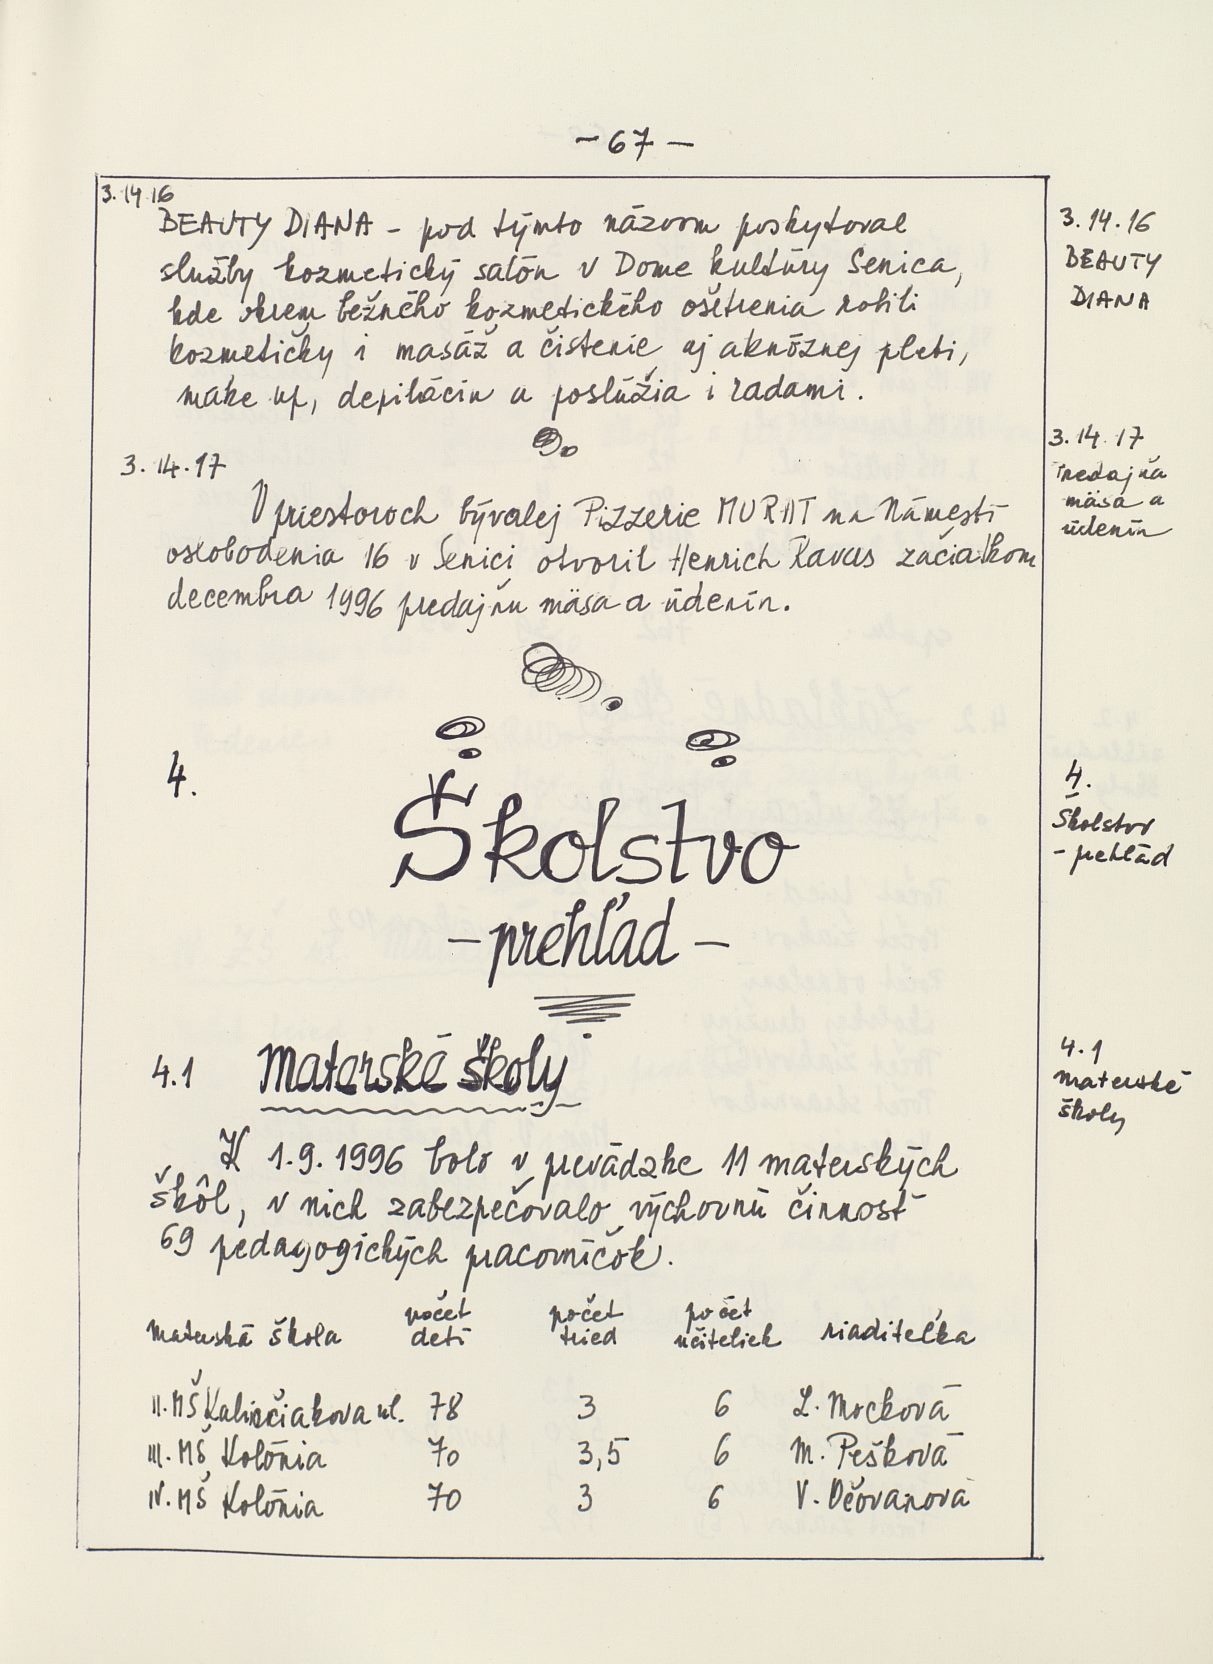 – 67 –
3.14.16
BEAUTY DIANA – pod týmto názvom poskytoval
služby kozmetický salón v Dome kultúry Senica,
kde okrem bežného kozmetického ošetrenia robili
kozmetičky i masáž a čistenie aj aknóznej pleti,
make up, depiláciu a poslúžia i radami.
3.14.16
BEAUTY
DIANA
3.14.17
V priestoroch bývalej Pizzerie MURAT na Námestí
oslobodenia 16 v Senici otvoril Henrich Ravas začiatkom
decembra 1996 predajňu mäsa a údenín.
3.14.17
Predajňa
mäsa a
údenín
4.
Školstvo
– prehľad –
4.
Školstvo
– prehľad
4.1 Materské školy
4.1
materské
školy
K 1.9.1996 bolo v prevádzke 11 materských
škôl, v nich zabezpečovalo výchovnú činnosť
69 pedagogických pracovníčok.
materská škola počet detí počet tried počet učiteliek riaditeľka
II. MŠ Kalinčiakova ul. 78 3 6 L. Mocková
III. MŠ Kolónia 70 3,5 6 M. Pešková
IV. MŠ Kolónia 70 3 6 V.